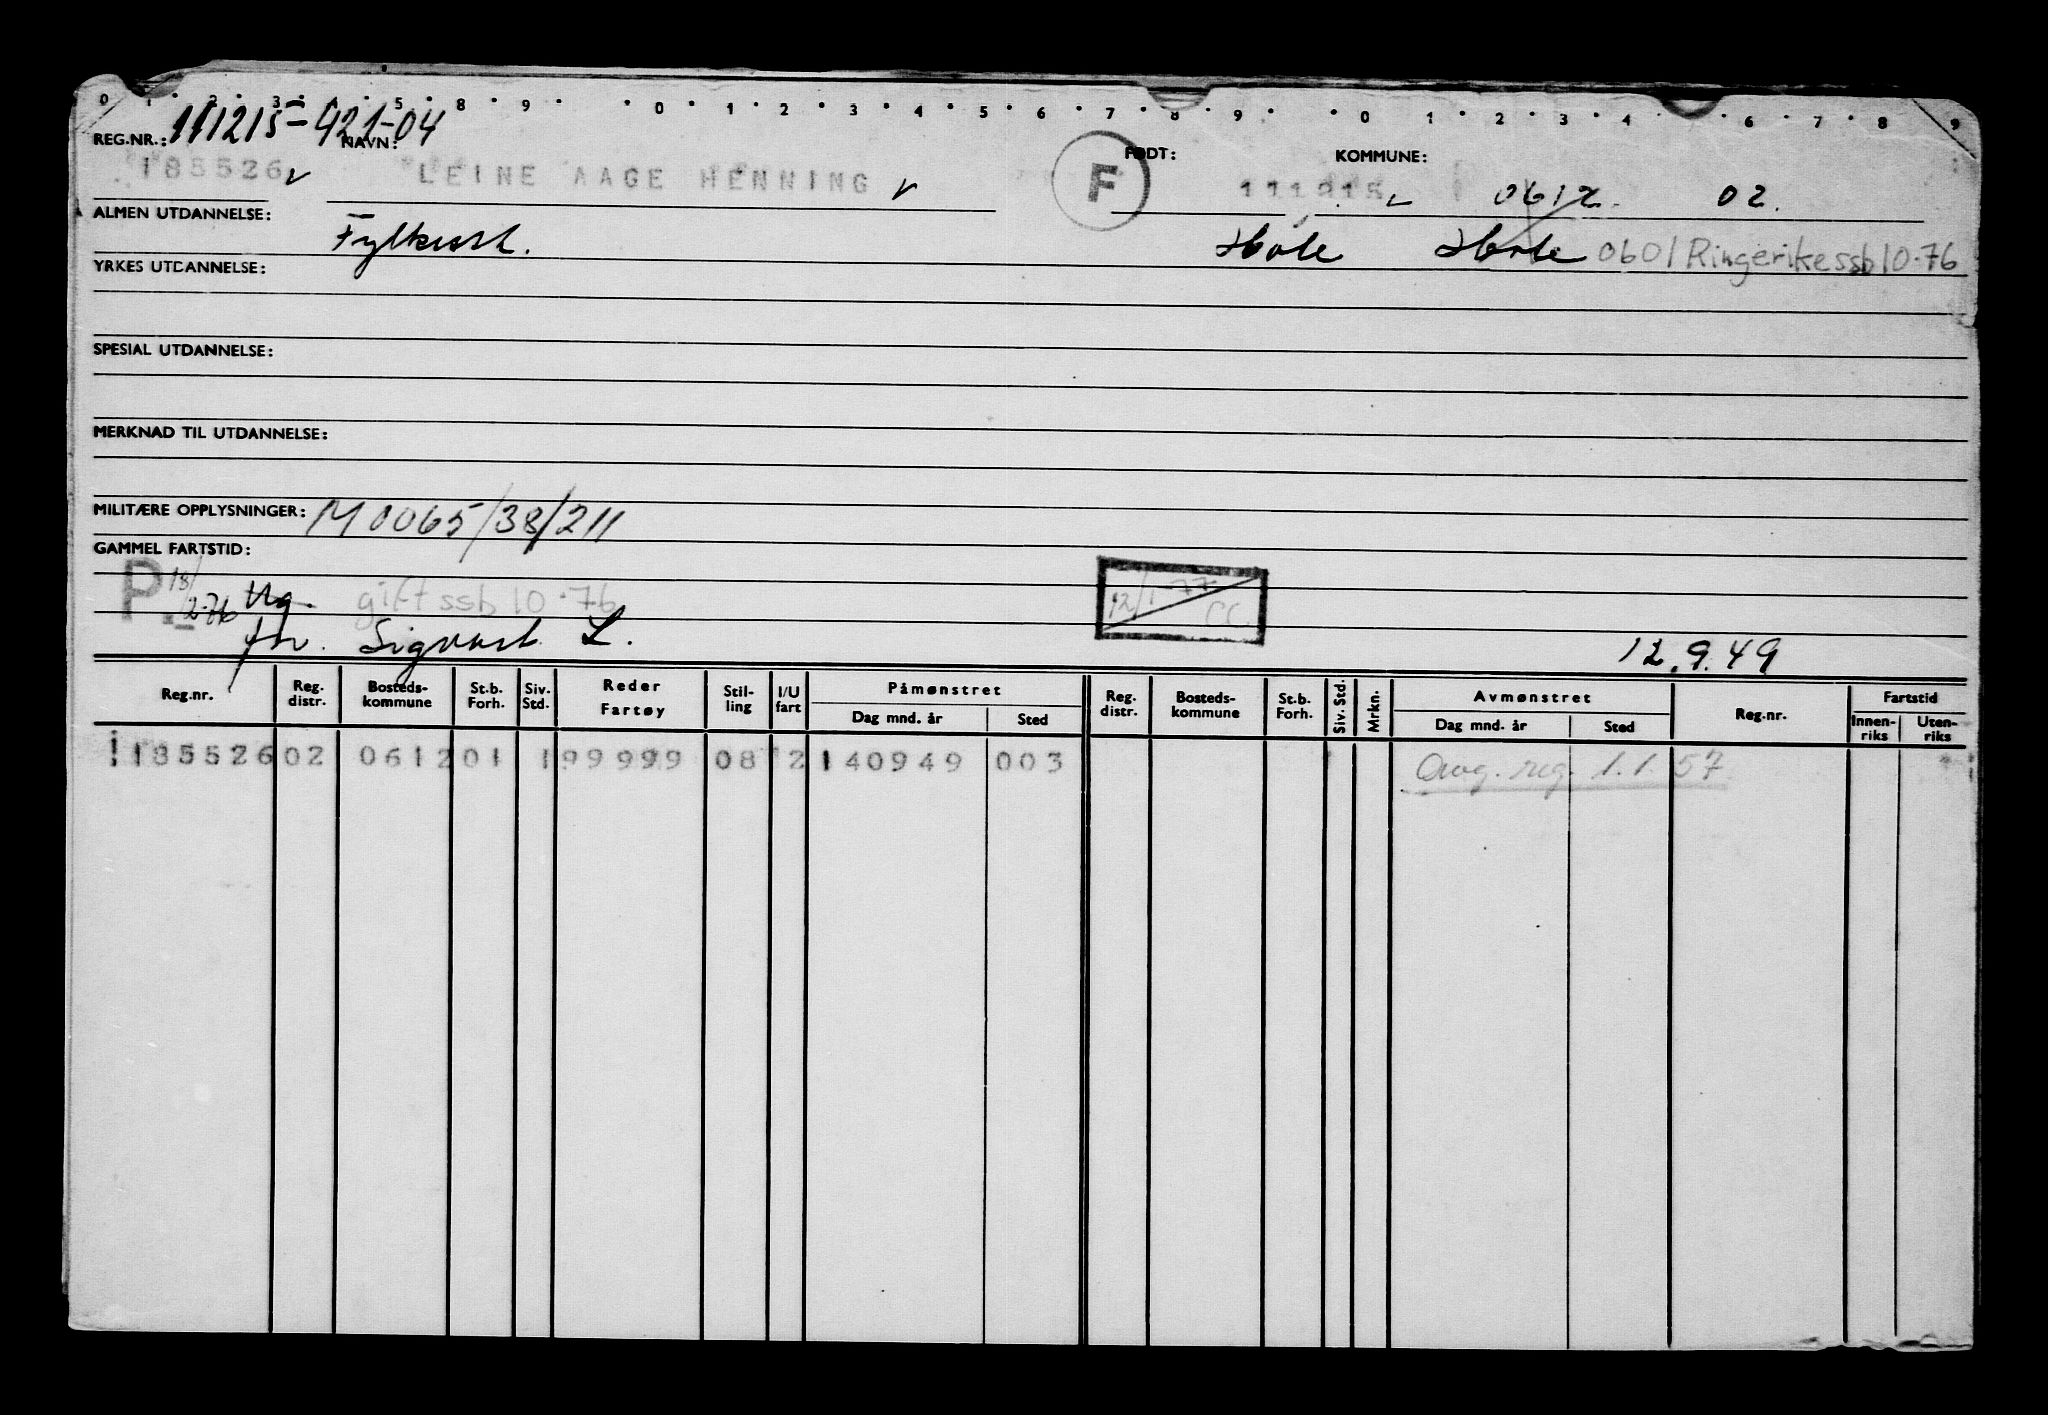 0 1 2 3 5 8 9 0 1 2 3 4 5 6 7 8 9 0 1 2 3 4 6 7 8 9
REG.NR.: 111215-421-04 NAVN: FØDT: KOMMUNE:
185526 LEINE AAGE HENNING F 111215 0612 02.
ALMEN UTDANNELSE: Fylkessk. Hole Hole 0601 Ringerike ssb 10.76
YRKES UTDANNELSE:
SPESIAL UTDANNELSE:
MERKNAD TIL UTDANNELSE:
MILITÆRE OPPLYSNINGER: M 0065/38/211
GAMMEL FARTSTID:
P. 18/2-76 Ug. gift ssb 10.76 12/1-77
for. Sigvart L. 12.9.49
Reg.nr. Reg. distr. Bosteds-kommune St.b. Forh. Siv. Std. Reder Fartøy Stil-ling I/U fart Påmønstret Dag mnd. år Sted Reg. distr. Bosteds-kommune St.b. Forh. Siv. Std. Mrkn. Avmønstret Dag mnd. år Sted Reg.nr. Fartstid Innen-riks Uten-riks
185526 02 0612 01 1 99999 08 2 140949 003 Avg. reg. 1.1.57